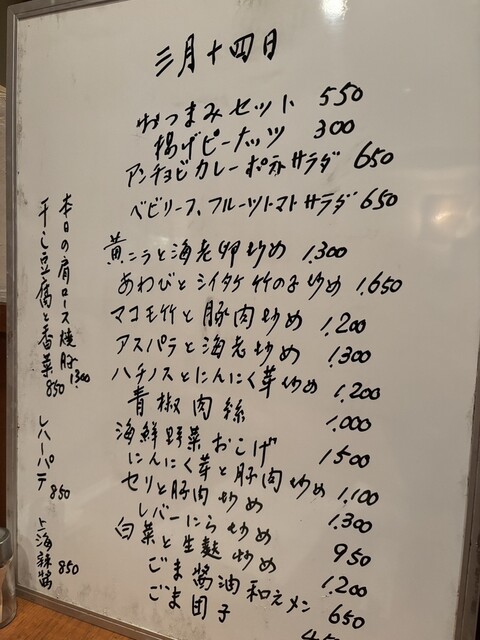 三月十四日
おつまみセット 550
揚げピーナッツ 300
アンチョビカレーポテトサラダ 650
ベビリーフ、フルーツトマトサラダ 650
黄ニラと海老卵炒め 1,300
あわびとシイタケ竹の子炒め 1,650
マコモ竹と豚肉炒め 1,200
アスパラと海老炒め 1,300
ハチノスとにんにく芽炒め 1,200
青椒肉絲 1,000
海鮮野菜おこげ 1500
にんにく芽と豚肉炒め 1,100
セリと豚肉炒め 1,300
レバーにら炒め 950
白菜と生麩炒め 1,200
ごま醤油和えメン 650
ごま団子
本日の肩ロース焼豚 1,300
干し豆腐と香菜 850
レバーパテ 850
上海辣醤 850